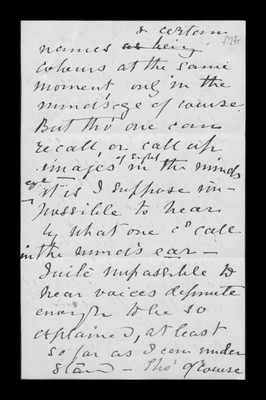 & certain
names as being
colours at the same
moment only in the
mind's eye of course.
But tho' one can
recall, or call up
images of sight in the minds
eye it is I suppose im-
possible to hear
by what one cd call
in the mind's ear —
Quite impossible to
hear voices definite
enough to be so
explained, at least
so far as I can under
stand — tho' of course